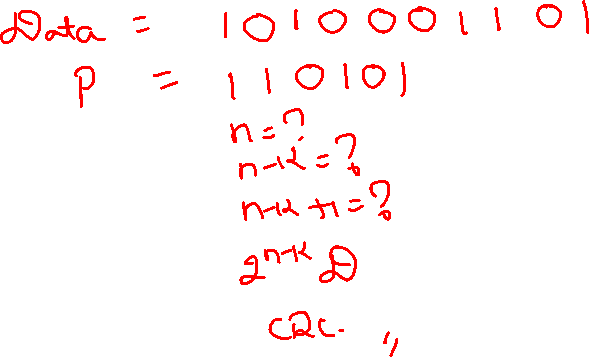 Data = 1010001101
P = 110101
n = ?
n-k = ?
n-k+1 = ?
2^{n-k} D
CRC. ,,